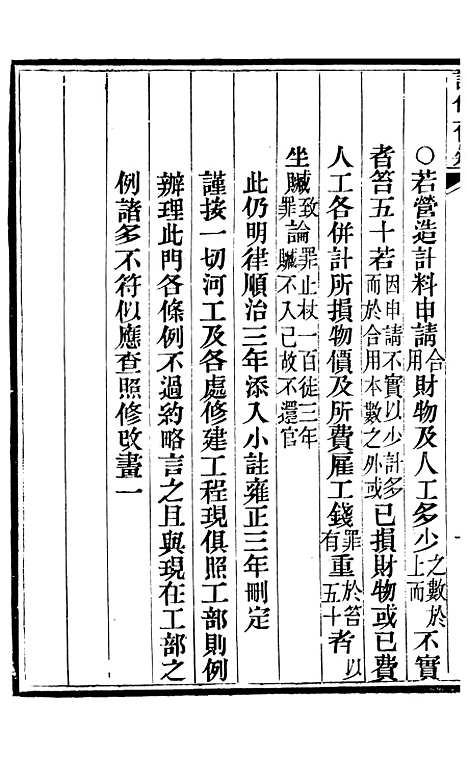 ○若營造計料申請合用財物及人工多少之數於上而不實
者笞五十若因申請不實以少計多而於合用本數之外或已損財物或已費
人工各併計所損物價及所費雇工錢罪有重於笞五十者以
坐贓致罪論罪止杖一百徒三年贓不入己故不還官
此仍明律順治三年添入小註雍正三年刪定
謹按一切河工及各處修建工程現俱照工部則例
辦理此門各條例不過約略言之且與現在工部之
例諸多不符似應查照修改畫一